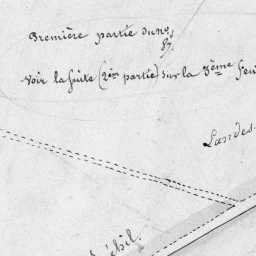 Première partie du n°
87.
Voir la suite (2ème partie) sur la 3ème feui
Landes